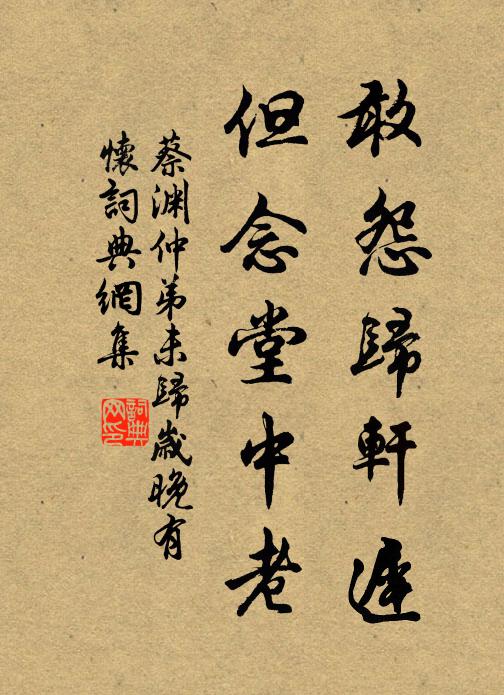 敢怨歸軒遲
但念堂中老
蔡渊仲弟未歸歲晚有
懷詞典網集
詞典网印